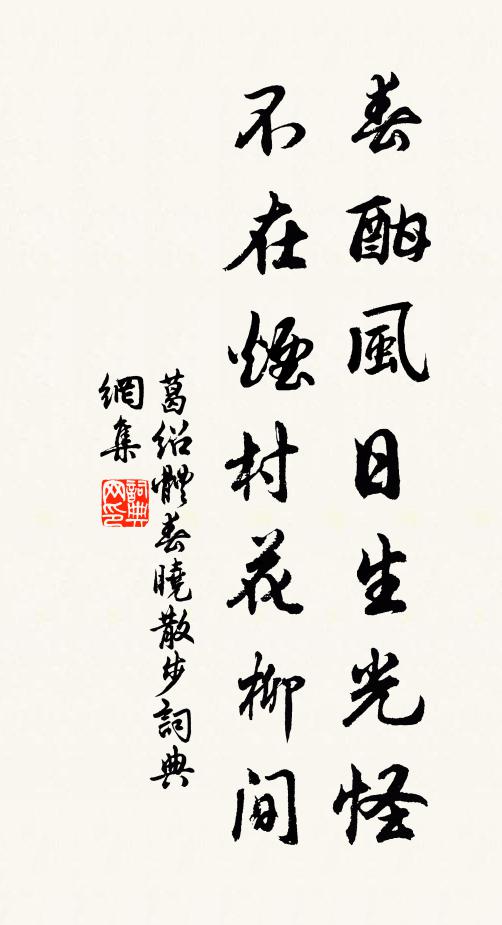 春酣風日生光怪
不在煙村花柳間
葛紹體春曉散步詞典
網集
詞典
网印